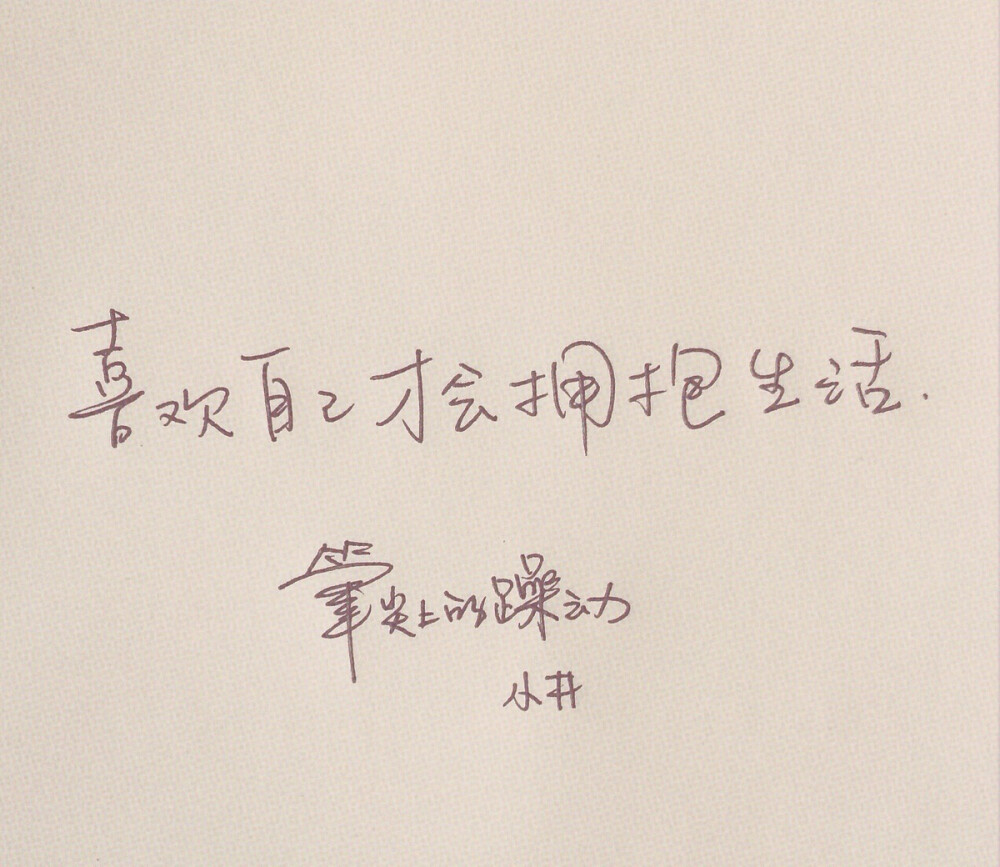 喜欢自己才会拥抱生活.
筆尖上的躁动
小井